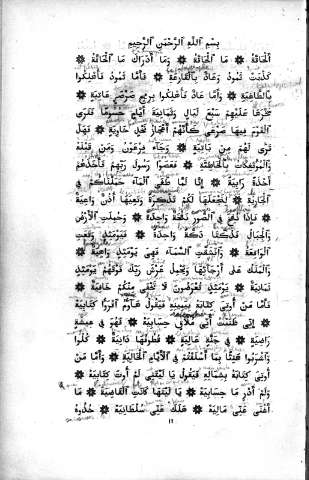 بِسْمِ اللّهِ الرَّحْمٰنِ الرَّحِيمِ
اَلْحَاقَّةُ ❋ مَا الْحَاقَّةُ ❋ وَمَا أَدْرَاكَ مَا الْحَاقَّةُ ❋
كَذَّبَتْ ثَمُودُ وَعَادٌ بِالْقَارِعَةِ ❋ فَأَمَّا ثَمُودُ فَأُهْلِكُوا
بِالطَّاغِيَةِ ❋ وَأَمَّا عَادٌ فَأُهْلِكُوا بِرِيحٍ صَرْصَرٍ عَاتِيَةٍ ❋
سَخَّرَهَا عَلَيْهِمْ سَبْعَ لَيَالٍ وَثَمَانِيَةَ أَيَّامٍ حُسُومًا فَتَرَى
الْقَوْمَ فِيهَا صَرْعَى كَأَنَّهُمْ أَعْجَازُ نَخْلٍ خَاوِيَةٍ ❋ فَهَلْ
تَرَى لَهُمْ مِنْ بَاقِيَةٍ ❋ وَجَاءَ فِرْعَوْنُ وَمَنْ قَبْلَهُ
وَالْمُؤْتَفِكَاتُ بِالْخَاطِئَةِ ❋ فَعَصَوْا رَسُولَ رَبِّهِمْ فَأَخَذَهُمْ
أَخْذَةً رَابِيَةً ❋ إِنَّا لَمَّا طَغَى الْمَاءُ حَمَلْنَاكُمْ فِي
الْجَارِيَةِ ❋ لِنَجْعَلَهَا لَكُمْ تَذْكِرَةً وَتَعِيَهَا أُذُنٌ وَاعِيَةٌ
❋ فَإِذَا نُفِخَ فِي الصُّورِ نَفْخَةٌ وَاحِدَةٌ ❋ وَحُمِلَتِ الْأَرْضُ
وَالْجِبَالُ فَدُكَّتَا دَكَّةً وَاحِدَةً ❋ فَيَوْمَئِذٍ وَقَعَتِ
الْوَاقِعَةُ ❋ وَانْشَقَّتِ السَّمَاءُ فَهِيَ يَوْمَئِذٍ وَاهِيَةٌ ❋
وَالْمَلَكُ عَلَى أَرْجَائِهَا وَيَحْمِلُ عَرْشَ رَبِّكَ فَوْقَهُمْ يَوْمَئِذٍ
ثَمَانِيَةٌ ❋ يَوْمَئِذٍ تُعْرَضُونَ لَا تَخْفَى مِنْكُمْ خَافِيَةٌ ❋
فَأَمَّا مَنْ أُوتِيَ كِتَابَهُ بِيَمِينِهِ فَيَقُولُ هَاؤُمُ اقْرَؤُا كِتَابِيَهْ
❋ إِنِّي ظَنَنْتُ أَنِّي مُلَاقٍ حِسَابِيَهْ ❋ فَهُوَ فِي عِيشَةٍ
رَاضِيَةٍ ❋ فِي جَنَّةٍ عَالِيَةٍ ❋ قُطُوفُهَا دَانِيَةٌ ❋ كُلُوا
وَاشْرَبُوا هَنِيئًا بِمَا أَسْلَفْتُمْ فِي الْأَيَّامِ الْخَالِيَةِ ❋ وَأَمَّا مَنْ
أُوتِيَ كِتَابَهُ بِشِمَالِهِ فَيَقُولُ يَا لَيْتَنِي لَمْ أُوتَ كِتَابِيَهْ ❋
وَلَمْ أَدْرِ مَا حِسَابِيَهْ ❋ يَا لَيْتَهَا كَانَتِ الْقَاضِيَةَ ❋ مَا
أَغْنَى عَنِّي مَالِيَهْ ❋ هَلَكَ عَنِّي سُلْطَانِيَهْ ❋ خُذُوهُ